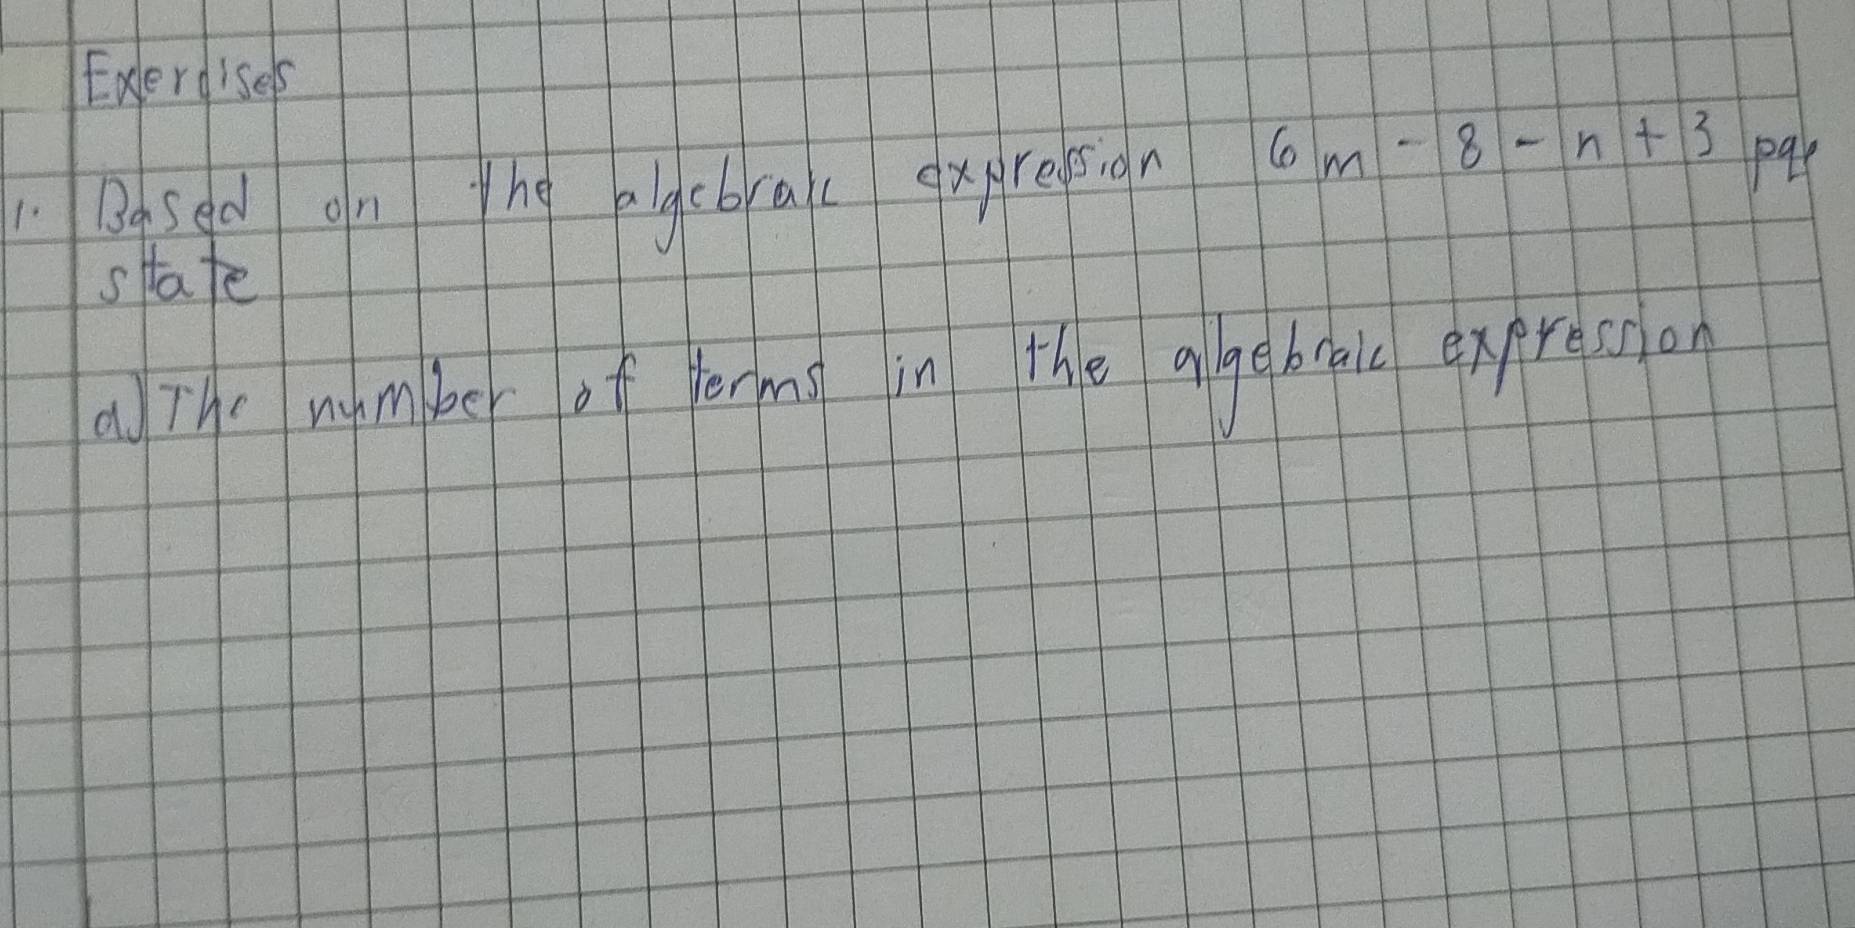 Exercises
1. Based on the algebraic expression 6m - 8 - n + 3pq
state
a) The number of terms in the algebraic expression